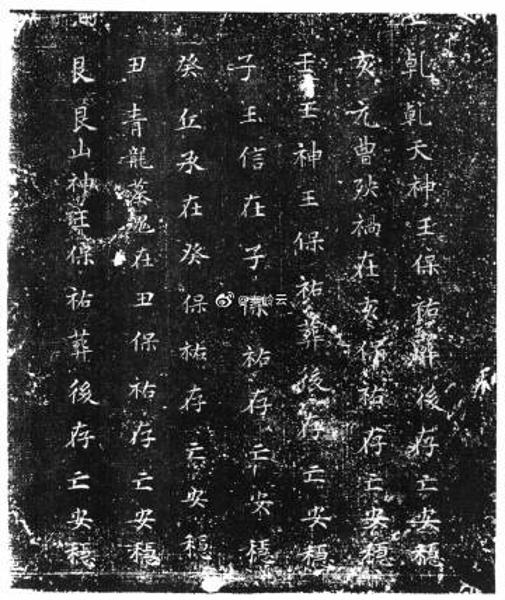 乹乹天神王保祐葬後存亡安穩
亥元曹殃禍在亥保祐存亡安穩
壬壬神王保祐葬後存亡安穩
子玉信在子保祐存亡安穩
癸丘丞在癸保祐存亡安穩
丑青龍墓鬼在丑保祐存亡安穩
艮艮山神王保祐葬後存亡安穩
@秦岭云